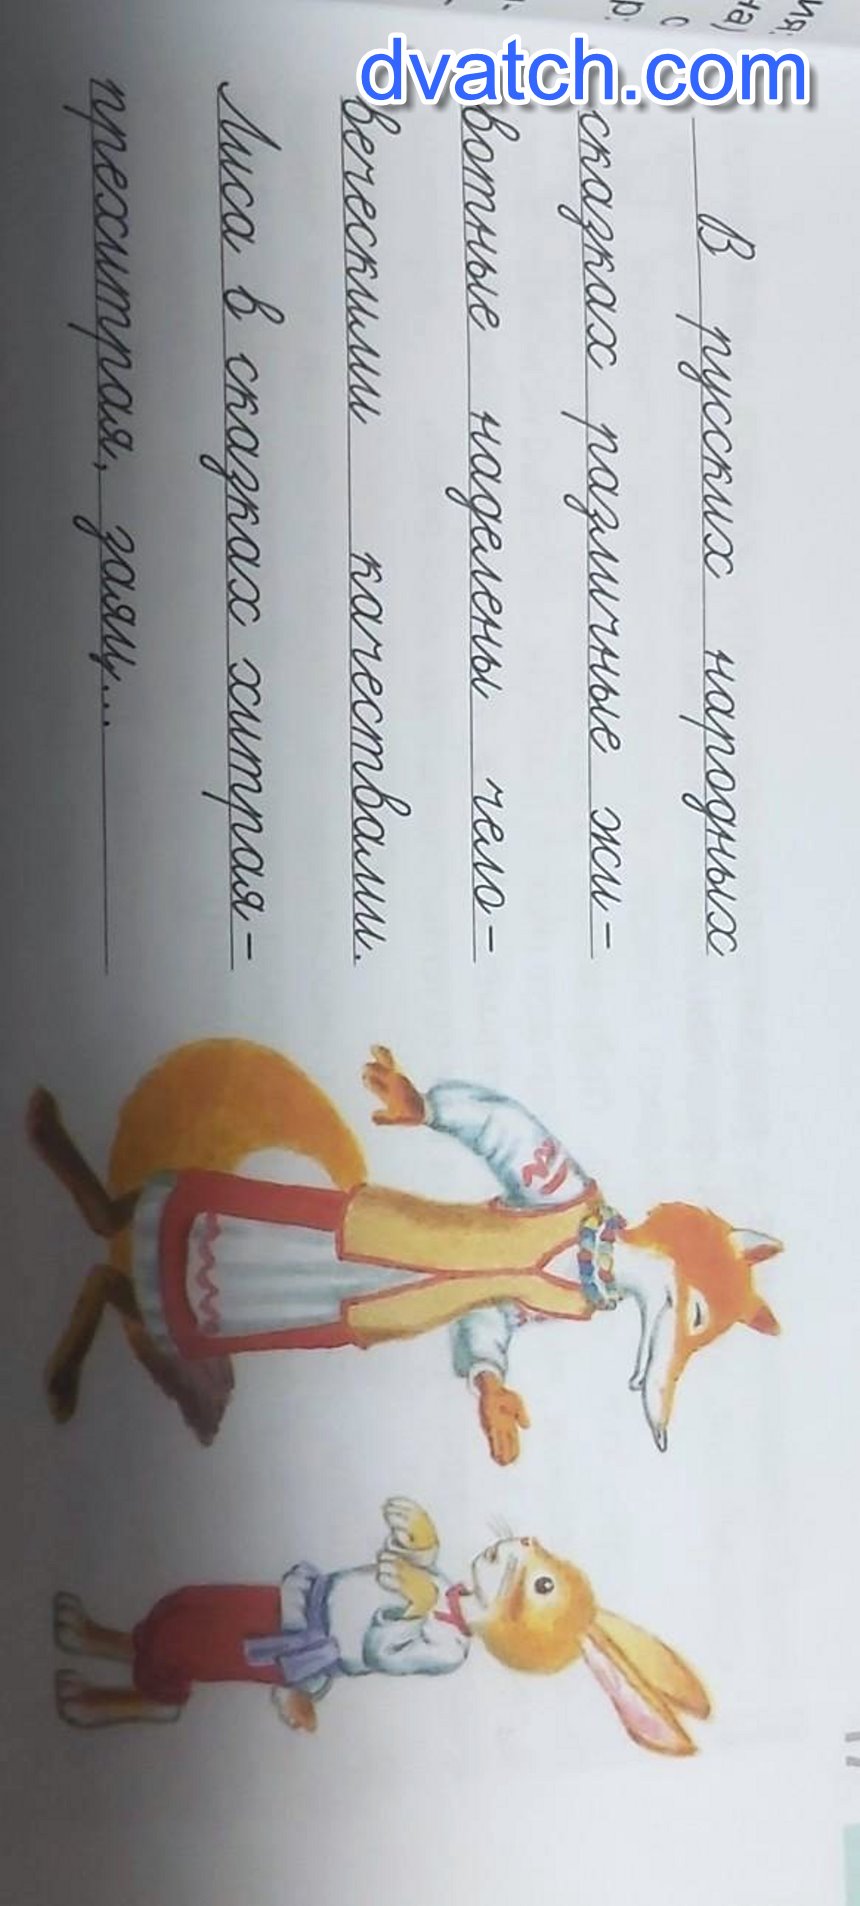 dvatch.com
В русских народных
сказках различные жи-
вотные наделены чело-
веческими качествами.
Лиса в сказках хитрая-
прехитрая, заяц...